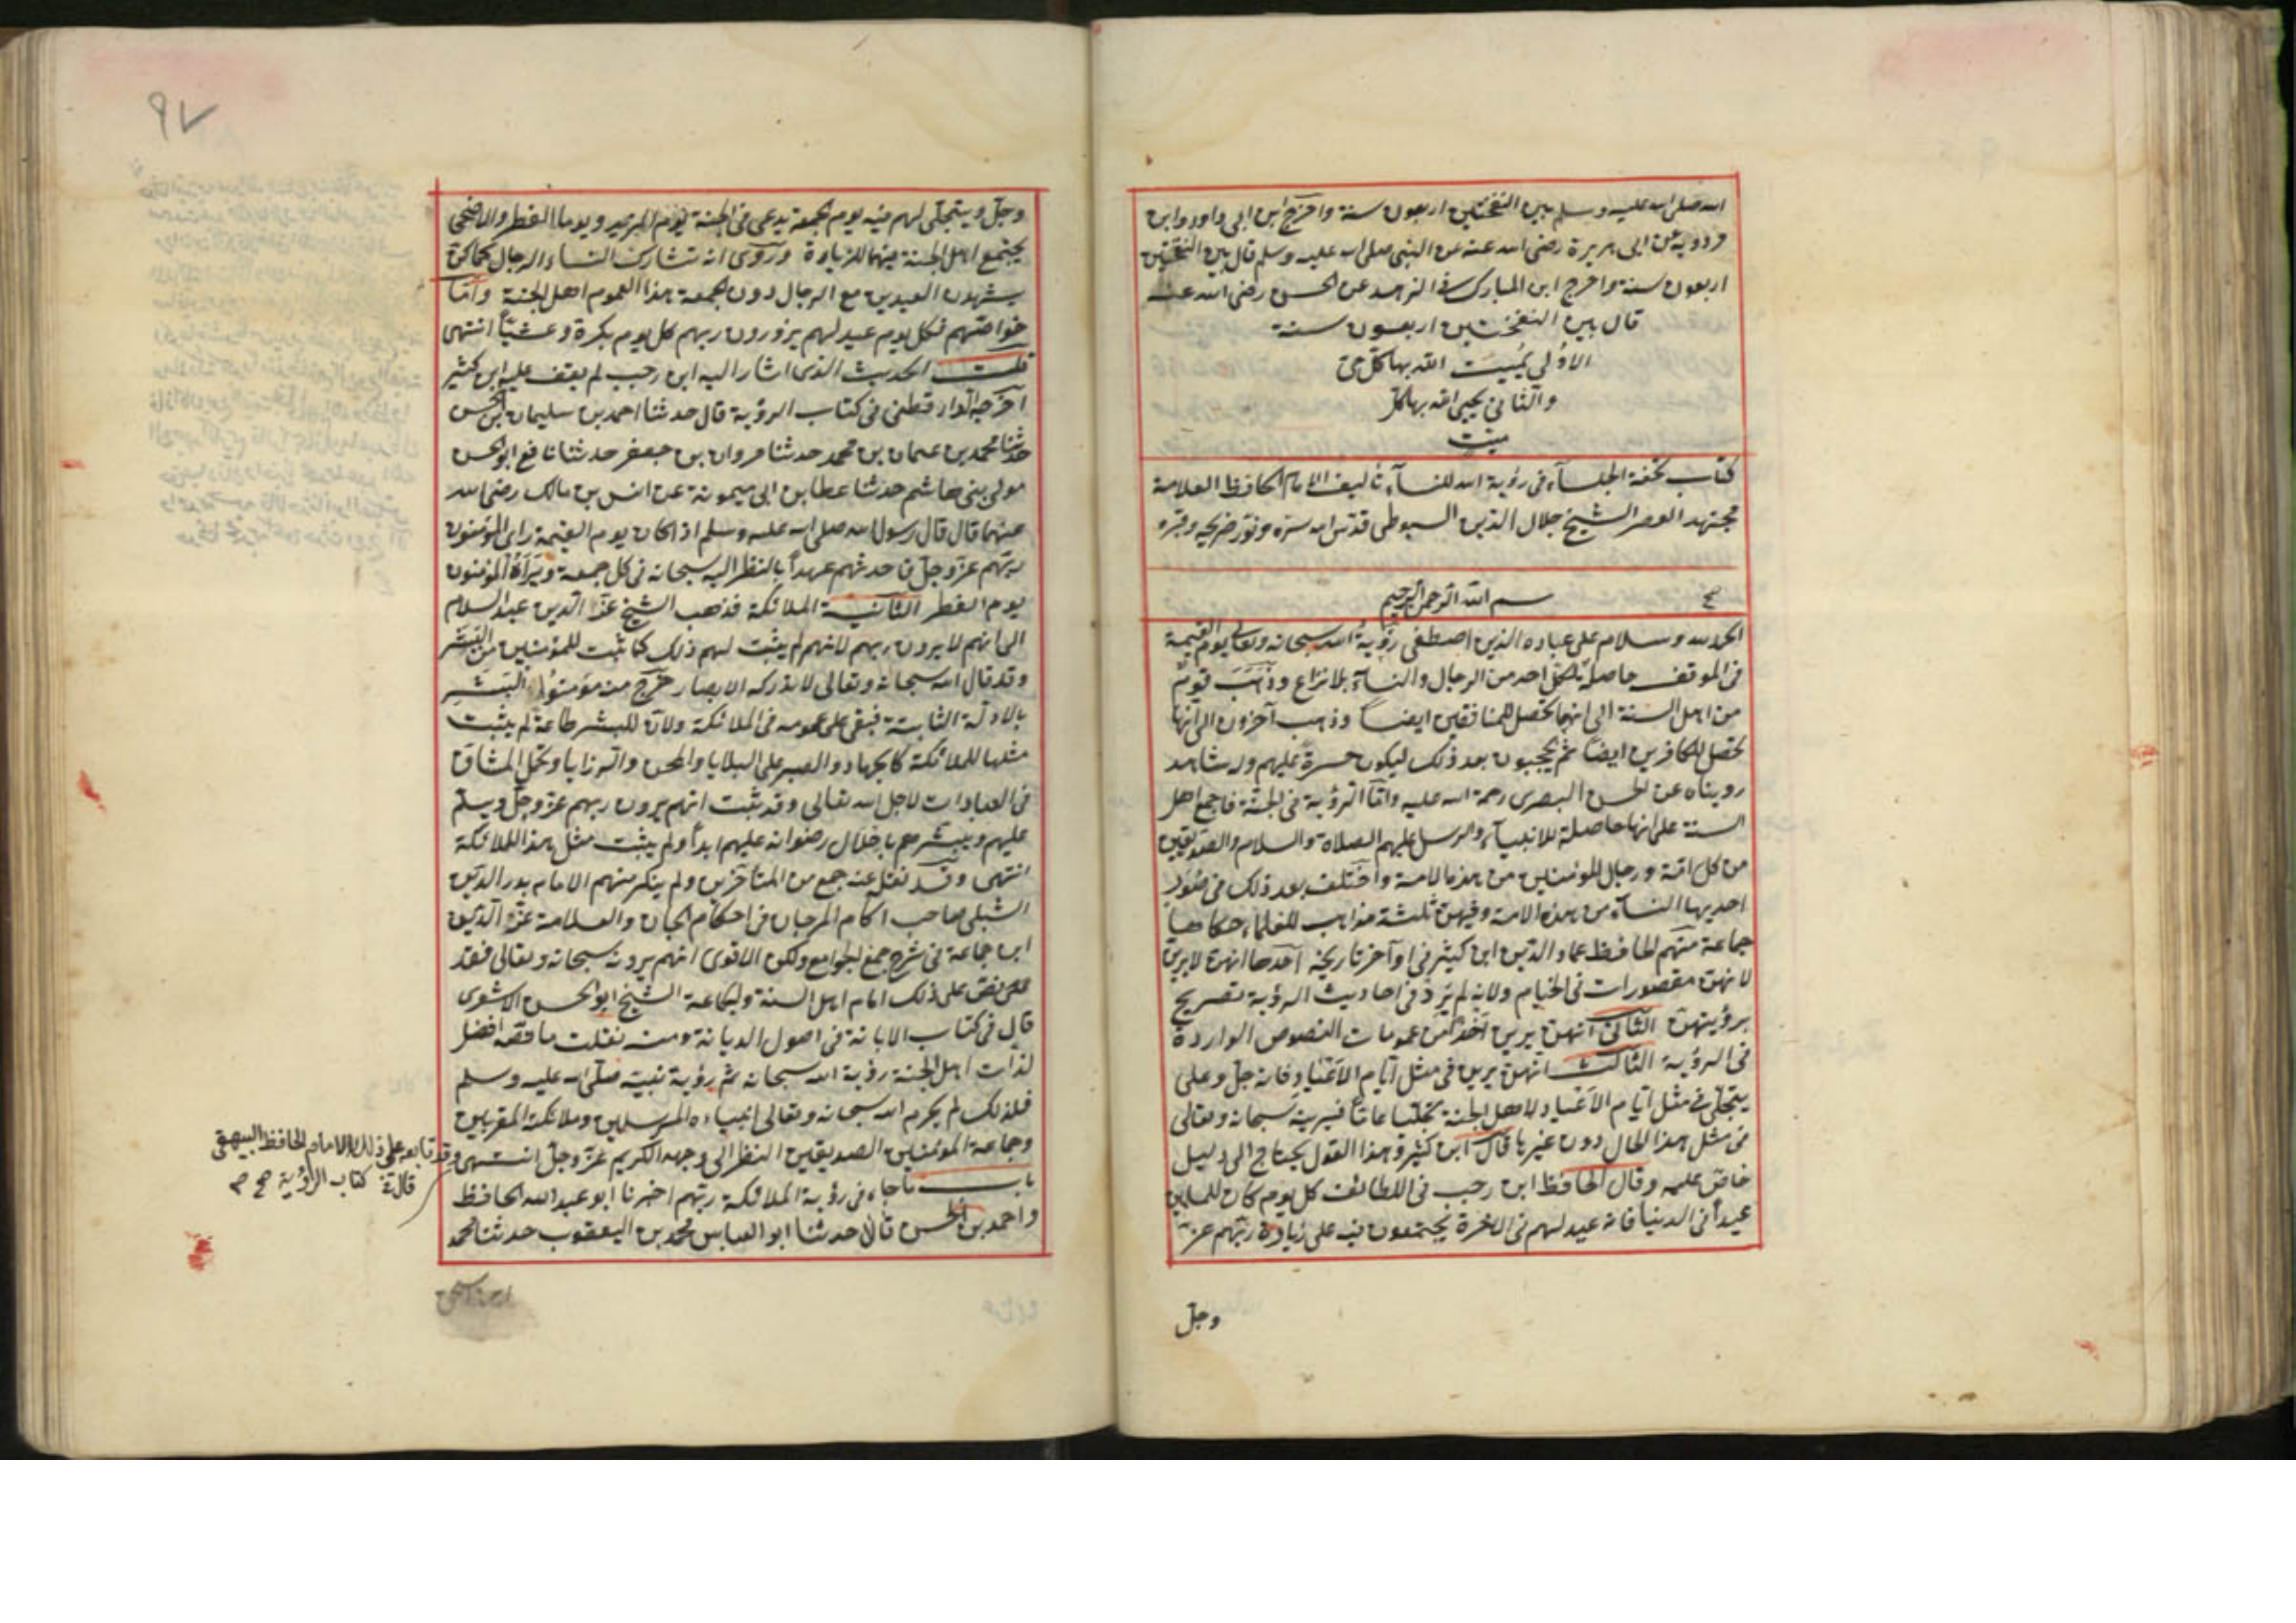 الله صلى الله عليه وسلم بين النفختين اربعون سنة واخرج ابن ابى داود وابن
مردويه عن ابى هريرة رضى الله عنه عن النبى صلى الله عليه وسلم قال بين النفختين
اربعون سنة واخرج ابن المبارك فى الزهد عن الحسن رضى الله عنه
قال بين النفختين اربعون سنة
الاولى يُميت الله بها كل حى
والثانى يحيى الله بها كل
ميت
كتاب تحفة الجلسآء فى رؤية الله للنسآء تأليف الامام الحافظ العلامة
مجتهد العصر الشيخ جلال الدين السيوطى قدّس الله سرّه ونوّر ضريحه وقبره
بسم الله الرحمن الرحيم
الحمد لله وسلام على عباده الذين اصطفى رؤية الله سبحانه وتعالى يوم القيمة
فى الموقف حاصلة لكل احد من الرجال والنسآء بلا نزاع وذَهَبَ قومٌ
من اهل السنة الى انها تحصل للمنافقين ايضا وذهب آخرون الى انها
تحصل للكافرين ايضا ثم يحجبون بعد ذلك ليكون حسرة عليهم وله شاهد
رويناه عن الحسن البصرى رحمة الله عليه وامّا الرؤية فى الجنّة فاجمع اهل
السنة على انها حاصلة للانبيآء والرسل عليهم الصلاة والسلام والصديقين
من كل امّة ورجال المؤمنين من هذه الامة واختلف بعد ذلك فى صُوَرٍ
احديها النسآء من هذه الامة وفيهن ثلثة مذاهب للعلماء حكاها
جماعة منهم الحافظ عماد الدين ابن كثير فى اوآخر تاريخه احدها انهن لا يرين
لانهن مقصورات فى الخيام ولانه لم يَرِدْ فى احاديث الرؤية تصريح
برؤيتهن الثانى انهن يرين اخذًا من عمومات النصوص الواردة
فى الرؤية الثالث انهن يرين فى مثل ايّام الاعياد فانه جل وعلى
يتجلّى فى مثل ايّام الاعياد لاهل الجنة تجلّيا عامّا فيرينه سبحانه وتعالى
فى مثل هذا الحال دون غيرها قال ابن كثير وهذا القول يحتاج الى دليل
خاصّ عليه وقال الحافظ ابن رجب فى اللطائف كل يوم كان للمسلمين
عيداً فى الدنيا فانه عيد لهم فى الاخرة يجتمعون فيه على زيادة ربّهم عزّ
وجلّ
٩٧
وجلّ ويتجلّى لهم فيه يوم الجمعة يدعى فى الجنة يوم المزيد ويوما الفطر والاضحى
يجتمع اهل الجنة فيهما للزيادة ورُوى انه تشارك النساء الرجال كما كنّ
يشهدن العيدين مع الرجال دون الجمعة هذا لعموم اهل الجنة وامّا
خواصّهم فكل يوم عيد لهم يزورون ربهم كل يوم بكرة وعشيّاً انتهى
قلت الحديث الذى اشار اليه ابن رجب لم يقف عليه ابن كثير
اخرجه الدارقطنى فى كتاب الرؤية قال حدثنا احمد بن سليمان بن الحسن
حدثنا محمد بن عثمان بن محمد حدثنا مروان بن جعفر حدثنا نافع ابو الحسن
مولى بنى هاشم حدثنا عطا بن ابى ميمونة عن انس بن مالك رضى الله
عنهما قال قال رسول الله صلى الله عليه وسلم اذا كان يوم القيمة رأى المؤمنون
ربّهم عزّ وجلّ فاحدثهم عهداً بالنظر اليه سبحانه فى كل جمعة ويَراهُ المؤمنون
يوم الفطر الثانية الملائكة فذهب الشيخ عزّ الدين عبد السلام
الى انهم لا يرون ربهم لانهم لم يثبت لهم ذلك كما ثبت للمؤمنين من البشر
وقد قال الله سبحانه وتعالى لا تدركه الابصار خرج منه مؤمنوا البَشَر
بالادلّة الثابتة فبقى على عمومه فى الملائكة ولانّ للبشر طاعة لم يثبت
مثلها للملائكة كالجهاد والصبر على البلايا والمحن والرزايا وتحمّل المشاق
فى العبادات لاجل الله تعالى وقد ثبت انهم يرون ربهم عزّ وجلّ ويسلّم
عليهم ويبشرهم باحلال رضوانه عليهم ابداً ولم يثبت مثل هذا للملائكة
انتهى وقد نقل عنه جمع من المتأخرين ولم ينكر منهم الامام بدر الدين
الشبلى صاحب آكام المرجان فى احكام الجان والعلامة عزّ الدين
ابن جماعة فى شرح جمع الجوامع ولكن الاقوى انهم يرونه سبحانه وتعالى فقد
نصّ على ذلك امام اهل السنة والجماعة الشيخ ابو الحسن الاشعرى
قال فى كتاب الابانة فى اصول الديانة ومنه نقلت ما نصّه افضل
لذّات اهل الجنة رؤية الله سبحانه ثم رؤية نبيّه صلى الله عليه وسلم
فلذلك لم يحرم الله سبحانه وتعالى انبياءه المرسلين وملائكته المقربين
وجماعة المؤمنين الصديقين النظر الى وجهه الكريم عزّ وجلّ انتهى
وقد تابعه على ذلك الامام الحافظ البيهقى
قال فى كتاب الرؤية صح
باب ما جاء فى رؤية الملائكة ربّهم اخبرنا ابو عبد الله الحافظ
واحمد بن الحسن قالا حدثنا ابو العباس محمد بن اليعقوب حدثنا محمد